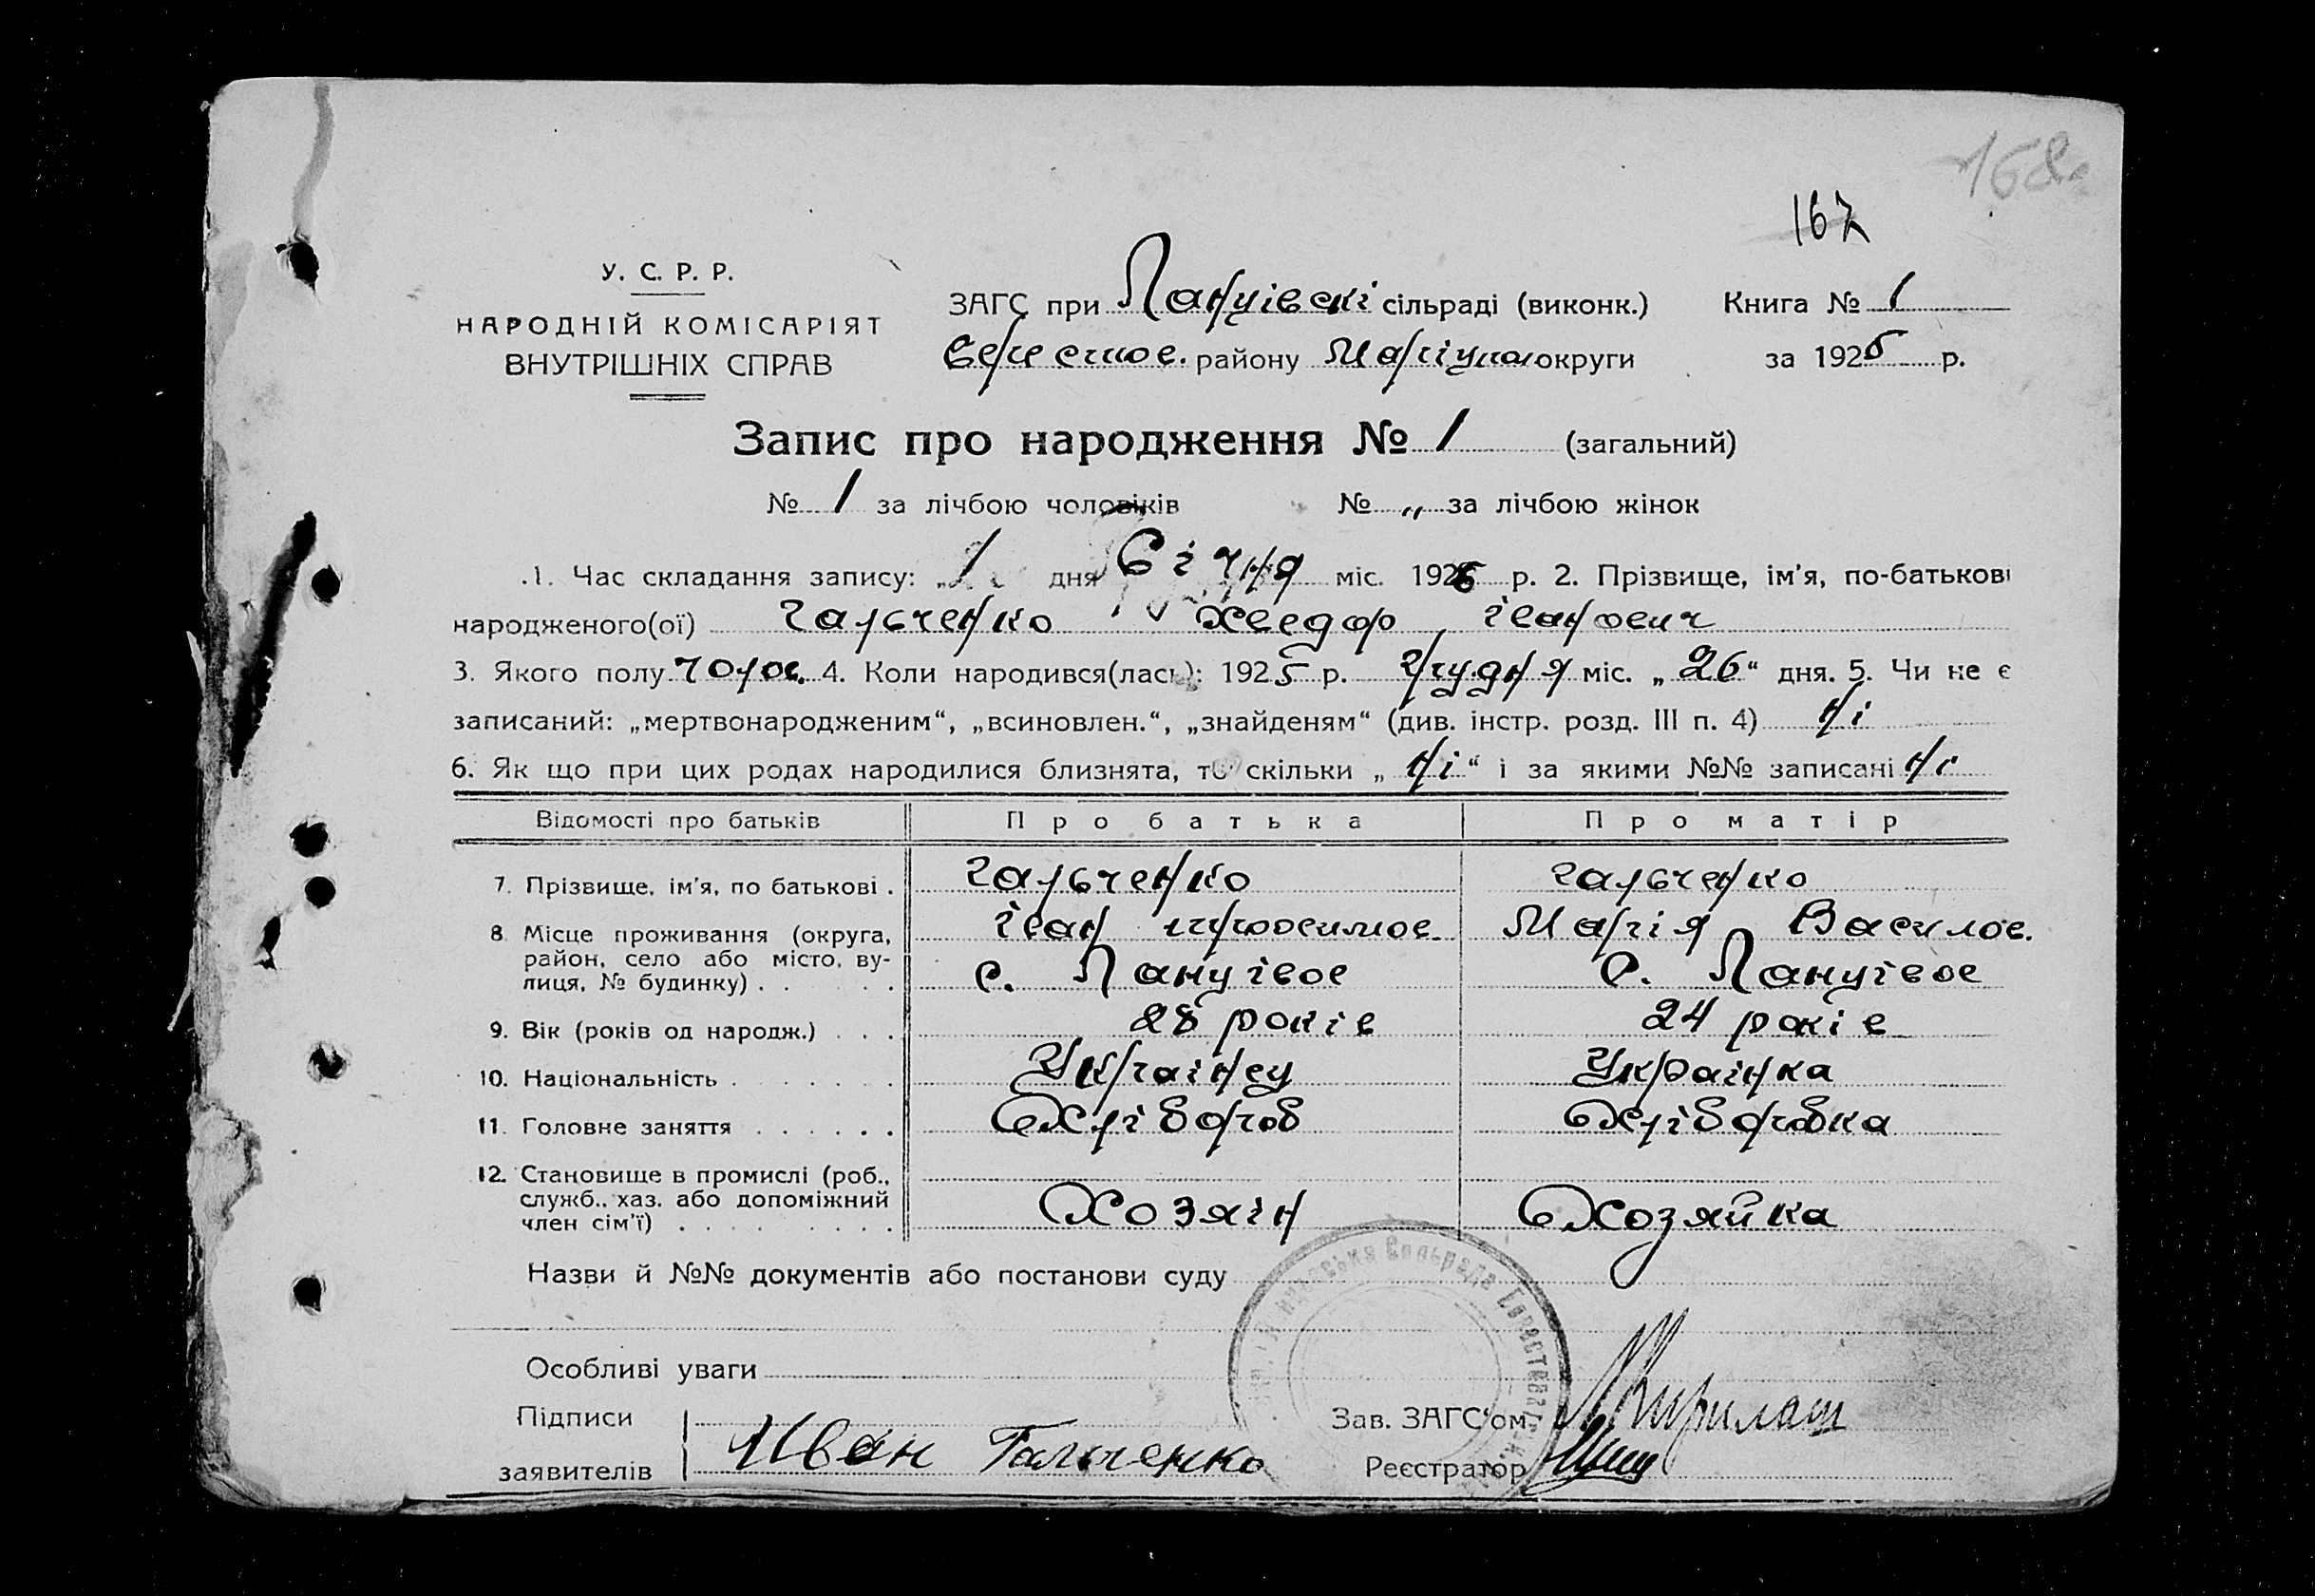 168
167
У. С. Р. Р.
НАРОДНІЙ КОМІСАРІЯТ
ВНУТРІШНІХ СПРАВ
ЗАГС при Ланцівскі сільраді (виконк.) Книга № 1
району Маріупол округи за 1926 р.
Запис про народження № 1 (загальний)
№ 1 за лічбою чоловіків № „ за лічбою жінок
1. Час складання запису: „1 дня Січня міс. 1926 р. 2. Прізвище, ім'я, по-батькові
народженого(ої) Гальченко Хведор іванович
3. Якого полу чолов. 4. Коли народився(лась): 1925 р. Грудня міс. „26“ дня. 5. Чи не є
записаний: „мертвонародженим“, „всиновлен.“, „знайденям“ (див. інстр. розд. III п. 4) Ні
6. Як що при цих родах народилися близнята, то скільки „Ні“ і за якими №№ записані Ні
Відомості про батьків Про батька Про матір
7. Прізвище, ім'я, по батькові . Гальченко Гальченко
іван Марія Василов.
8. Місце проживання (округа, район, село або місто, вулиця, № будинку) . . . . с. Ланцівое с. Ланцівое
9. Вік (років од народж.) . . . 28 років 24 років
10. Національність . . . . . . . Українец Українка
11. Головне заняття . . . . . . Хлібороб Хліборобка
12. Становище в промислі (роб., служб., хаз. або допоміжний член сім'ї) . . . . . . . . . Хозяін Хозяйка
Назви й №№ документів або постанови суду
Особливі уваги
Підписи
заявителів Иван Гальченко
Зав. ЗАГС'ом
Реєстратор